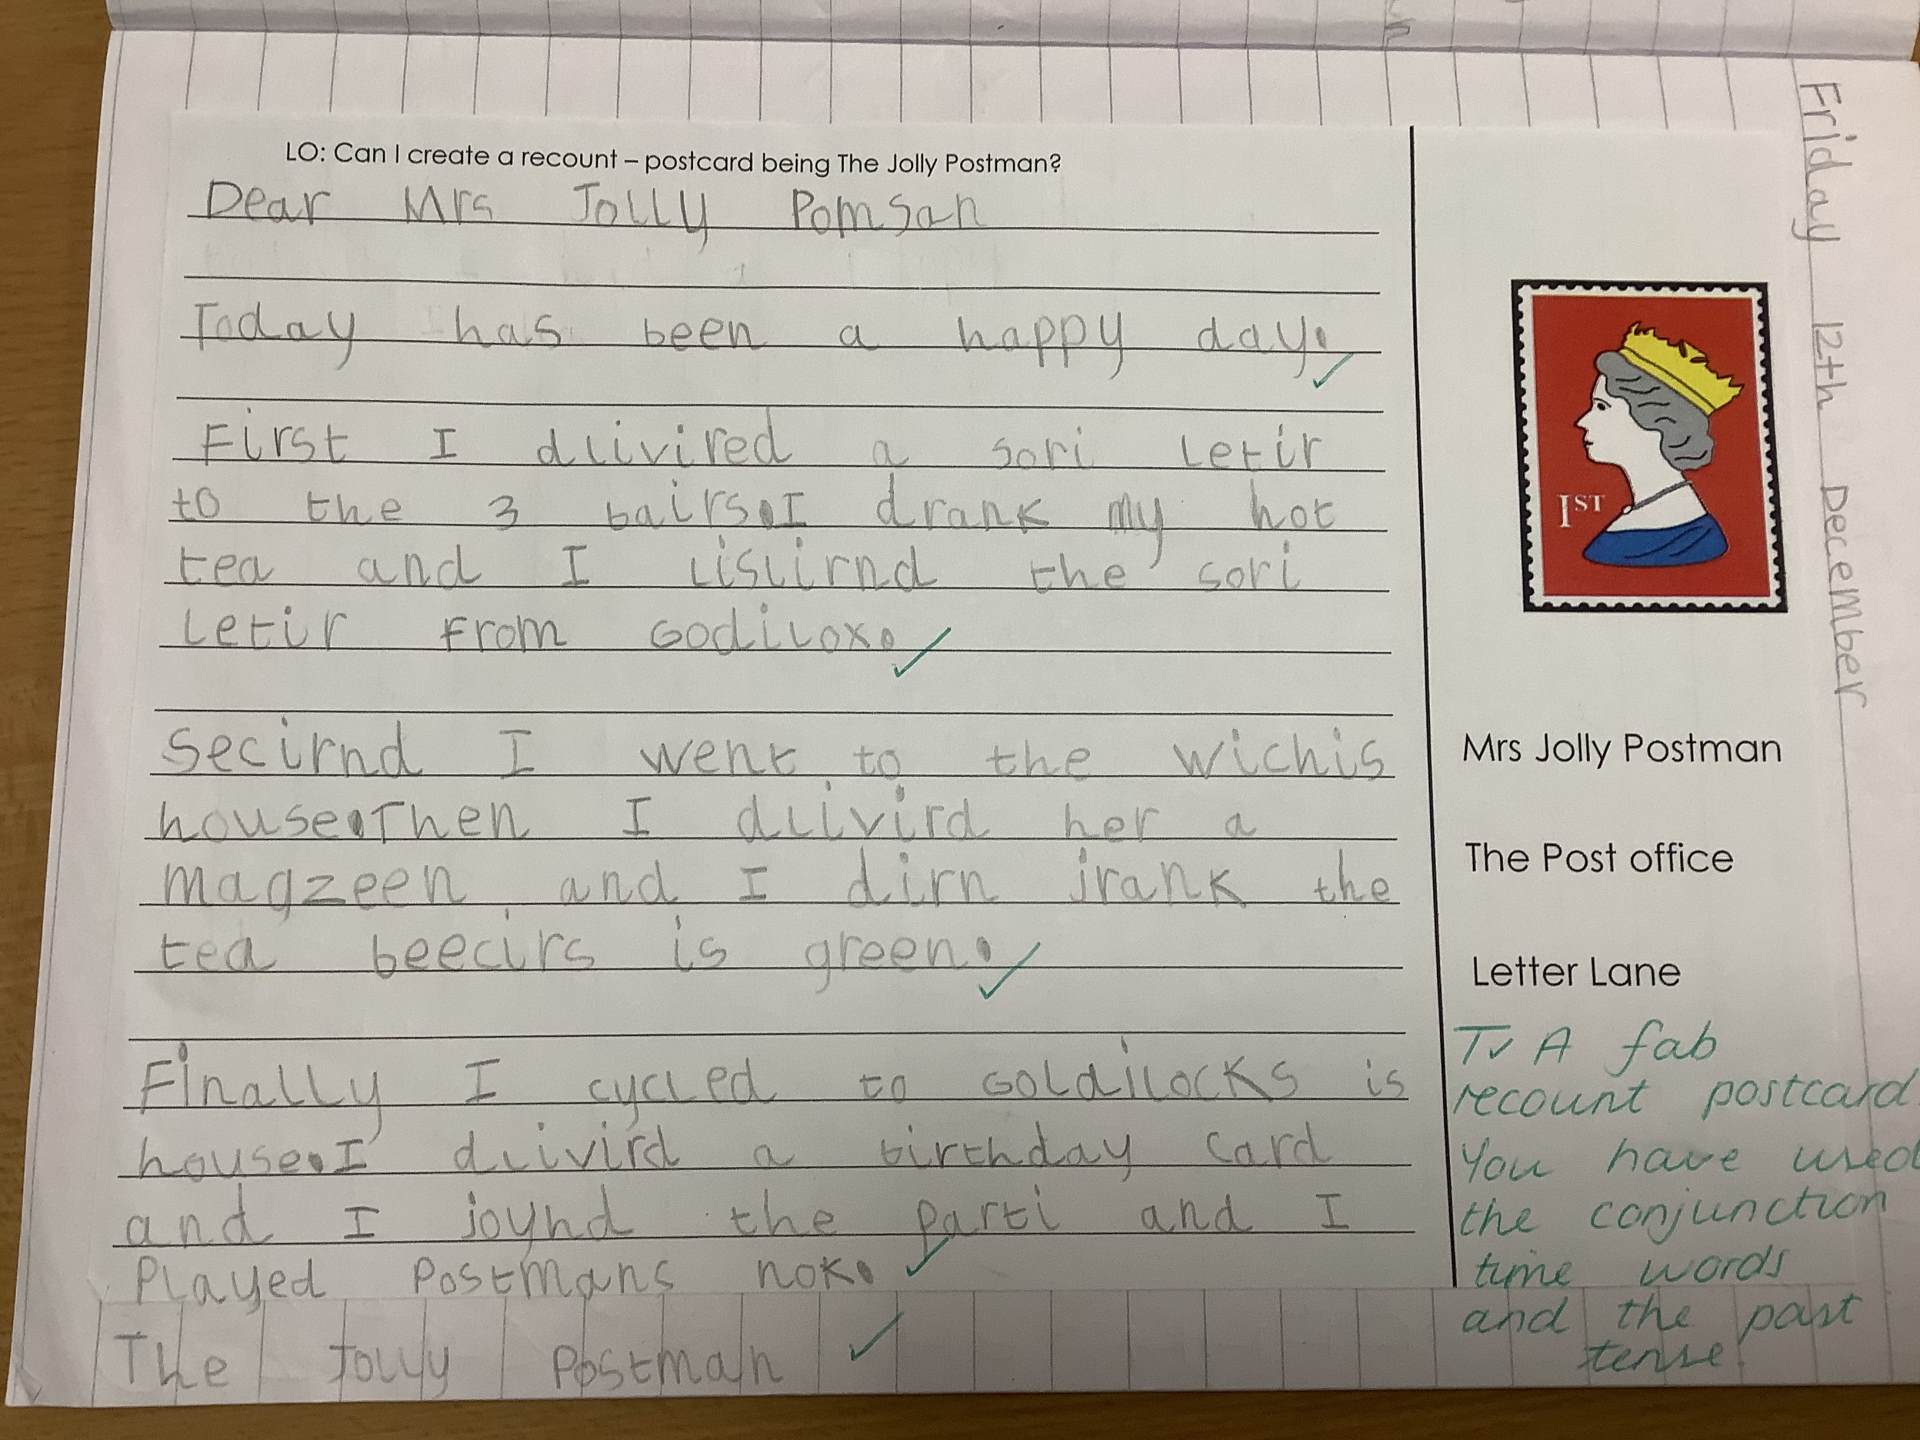 LO: Can I create a recount – postcard being The Jolly Postman?
Dear Mrs Jolly Pomsan
Today has been a happy day.
First I dlivired a sori letir
to the 3 bairs.I drank my hot
tea and I lislirnd the sori
letir from Godilox.
Secirnd I went to the wichis
house.Then I dlivird her a
magzeen and I dirn jrank the
tea beecirs is green.
Finally I cycled to Goldilocks is
house.I dlivird a birthday card
and I joynd the parti and I
Played Postmans nok.
The Jolly Postman
Friday 12th December
1ST
Mrs Jolly Postman
The Post office
Letter Lane
T✓ A fab
recount postcard
You have used
the conjunction
time words
and the past
tense.